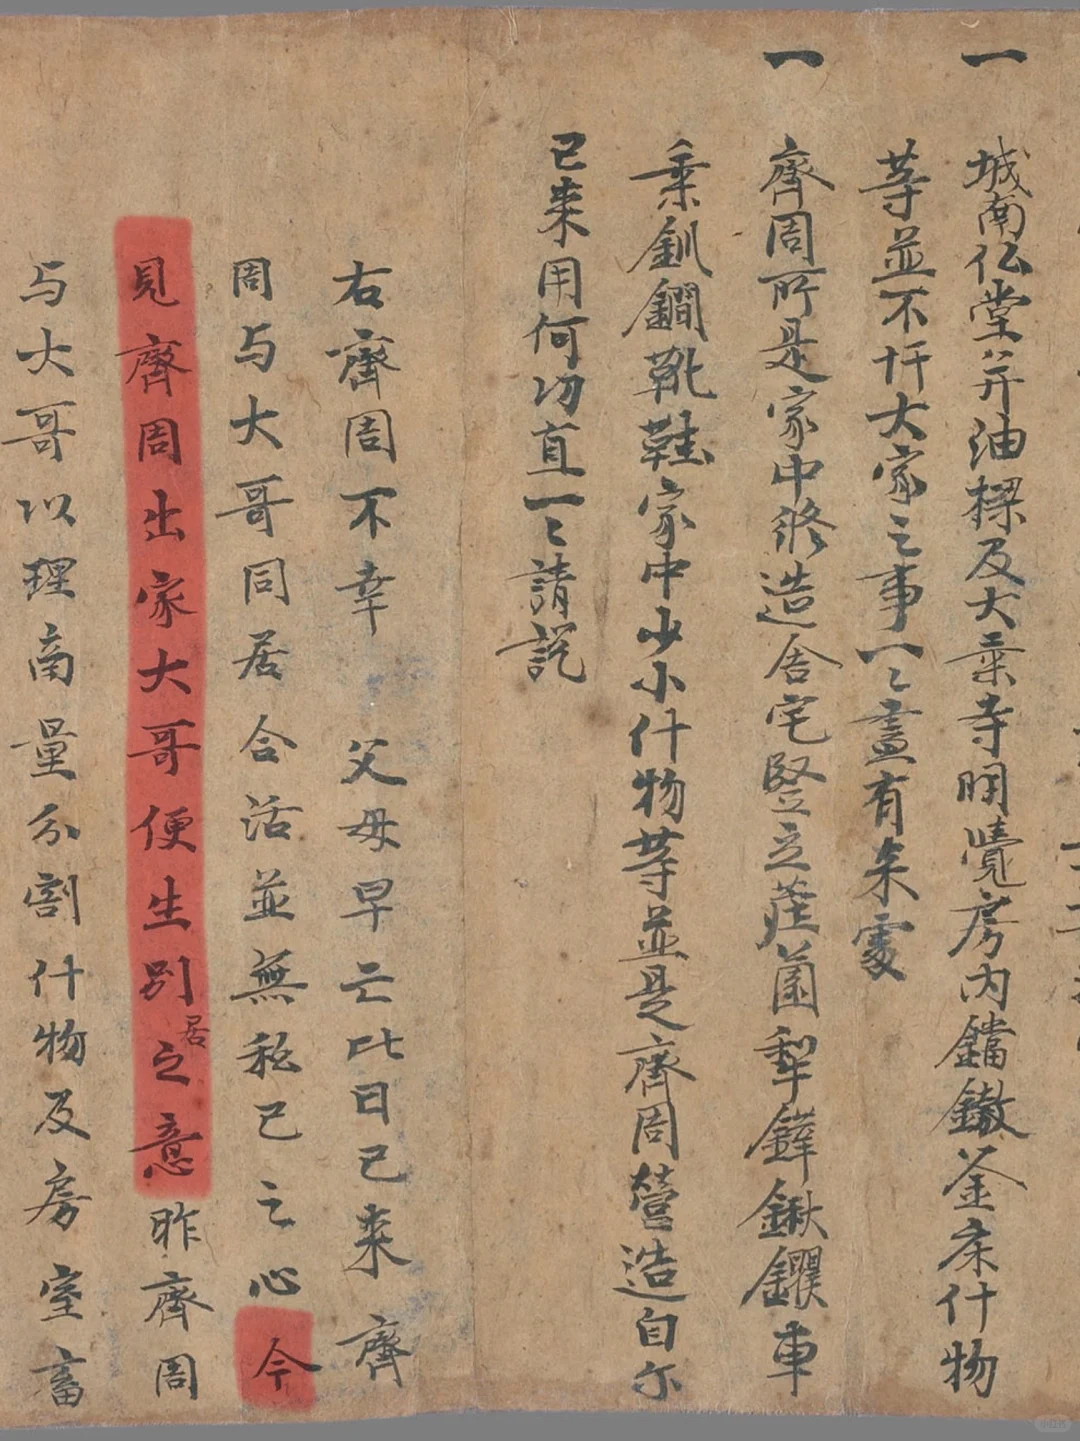 一 城南仏堂并油樑及大乗寺明覺房内鐺鏊釜床什物
等並不忏大家之事一〻盡有来處
一 齊周所是家中修造舍宅竪立莊園犁鏵鍬钁車
乗釧鐧靴鞋家中少小什物等並是齊周營造自尓
已来用何功直一〻請説
右齊周不幸 父母早亡比日已来 齊
周与大哥同居合活並無私己之心今
見齊周出家大哥便生別居之意昨齊周
与大哥以理商量分割什物及房室畜